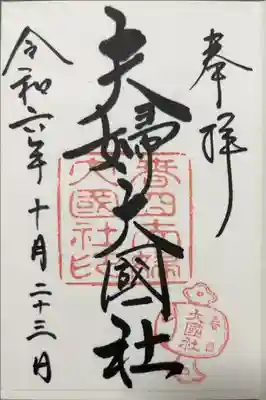 奉拝
夫婦大國社
春日末社
大國社印
春日
大國社
令和六年十月二十三日